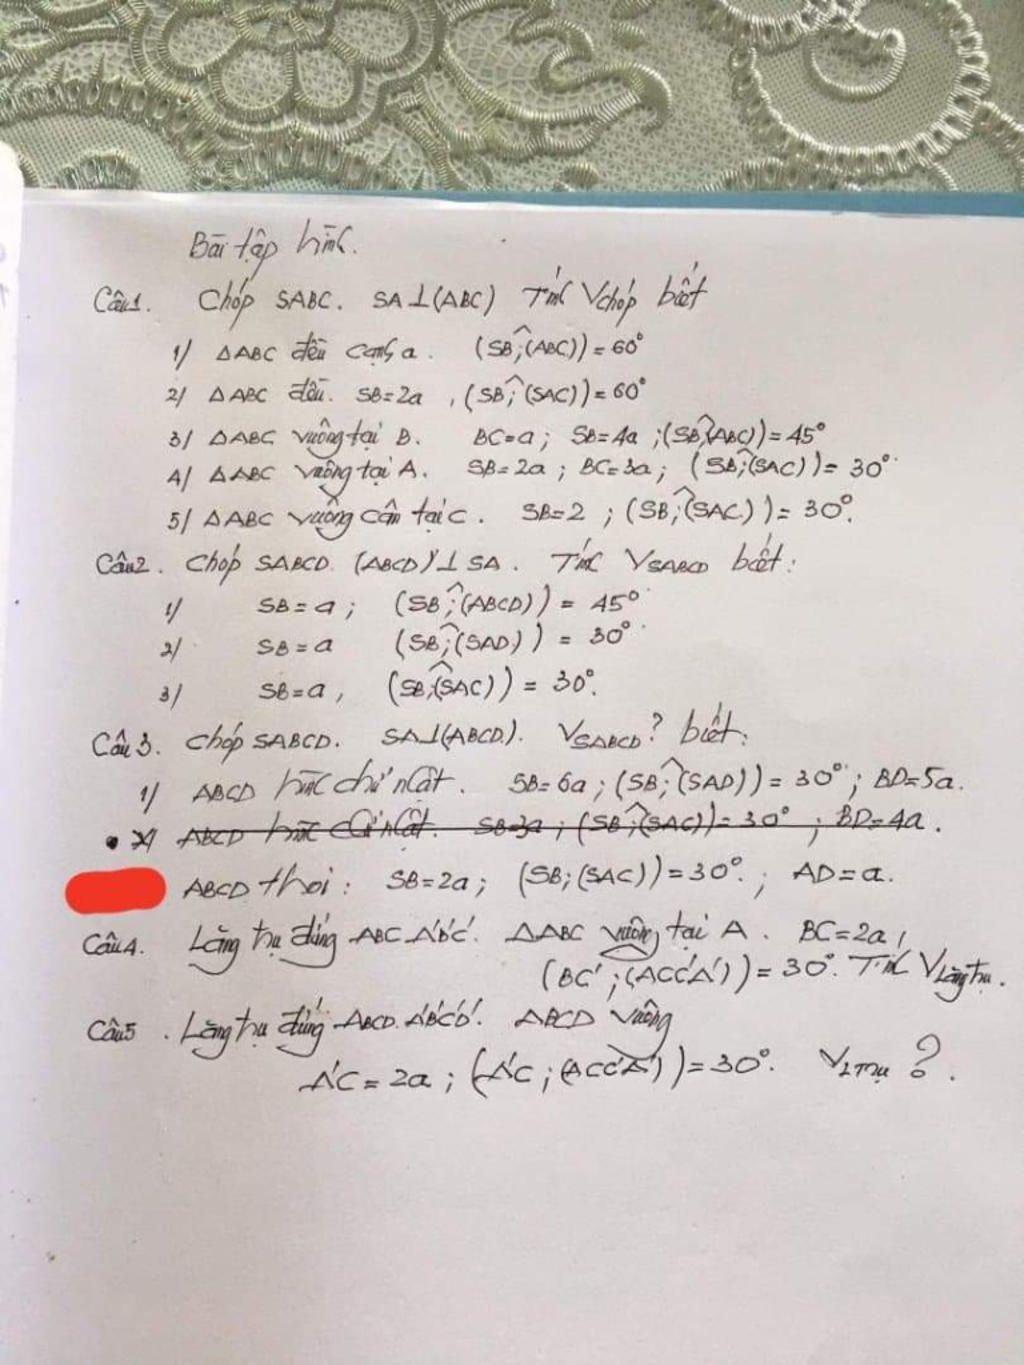 Bài tập hình.
Câu1. Chóp SABC. SA⊥(ABC) Tính Vchóp biết
1/ △ABC đều cạnh a. (SB;(ABC)) = 60°
2/ △ABC đều. SB=2a, (SB;(SAC)) = 60°
3/ △ABC vuông tại B. BC=a; SB=4a; (SB,(ABC)) = 45°
4/ △ABC vuông tại A. SB=2a; BC=3a; (SB;(SAC)) = 30°
5/ △ABC vuông cân tại C. SB=2; (SB;(SAC)) = 30°.
Câu2. Chóp SABCD. (ABCD)⊥SA. Tính VSABCD biết:
1/ SB=a; (SB;(ABCD)) = 45°
2/ SB=a (SB;(SAD)) = 30°
3/ SB=a, (SB,(SAC)) = 30°.
Câu3. Chóp SABCD. SA⊥(ABCD). VSABCD? biết:
1/ ABCD hình chữ nhật. SB=6a; (SB;(SAD)) = 30°; BD=5a.
ABCD hình chữ nhật. SB=3a; (SB;(SAC)) = 30°; BD=4a.
ABCD thoi: SB=2a; (SB;(SAC)) = 30°.; AD=a.
Câu4. Lăng trụ đứng ABC.A'B'C'. △ABC vuông tại A. BC=2a,
(BC';(ACC'A')) = 30°. Tính VLăng trụ.
Câu5. Lăng trụ đứng ABCD.A'B'C'D'. ABCD vuông
A'C=2a; (A'C;(ACC'A')) = 30°. VLTrụ?.